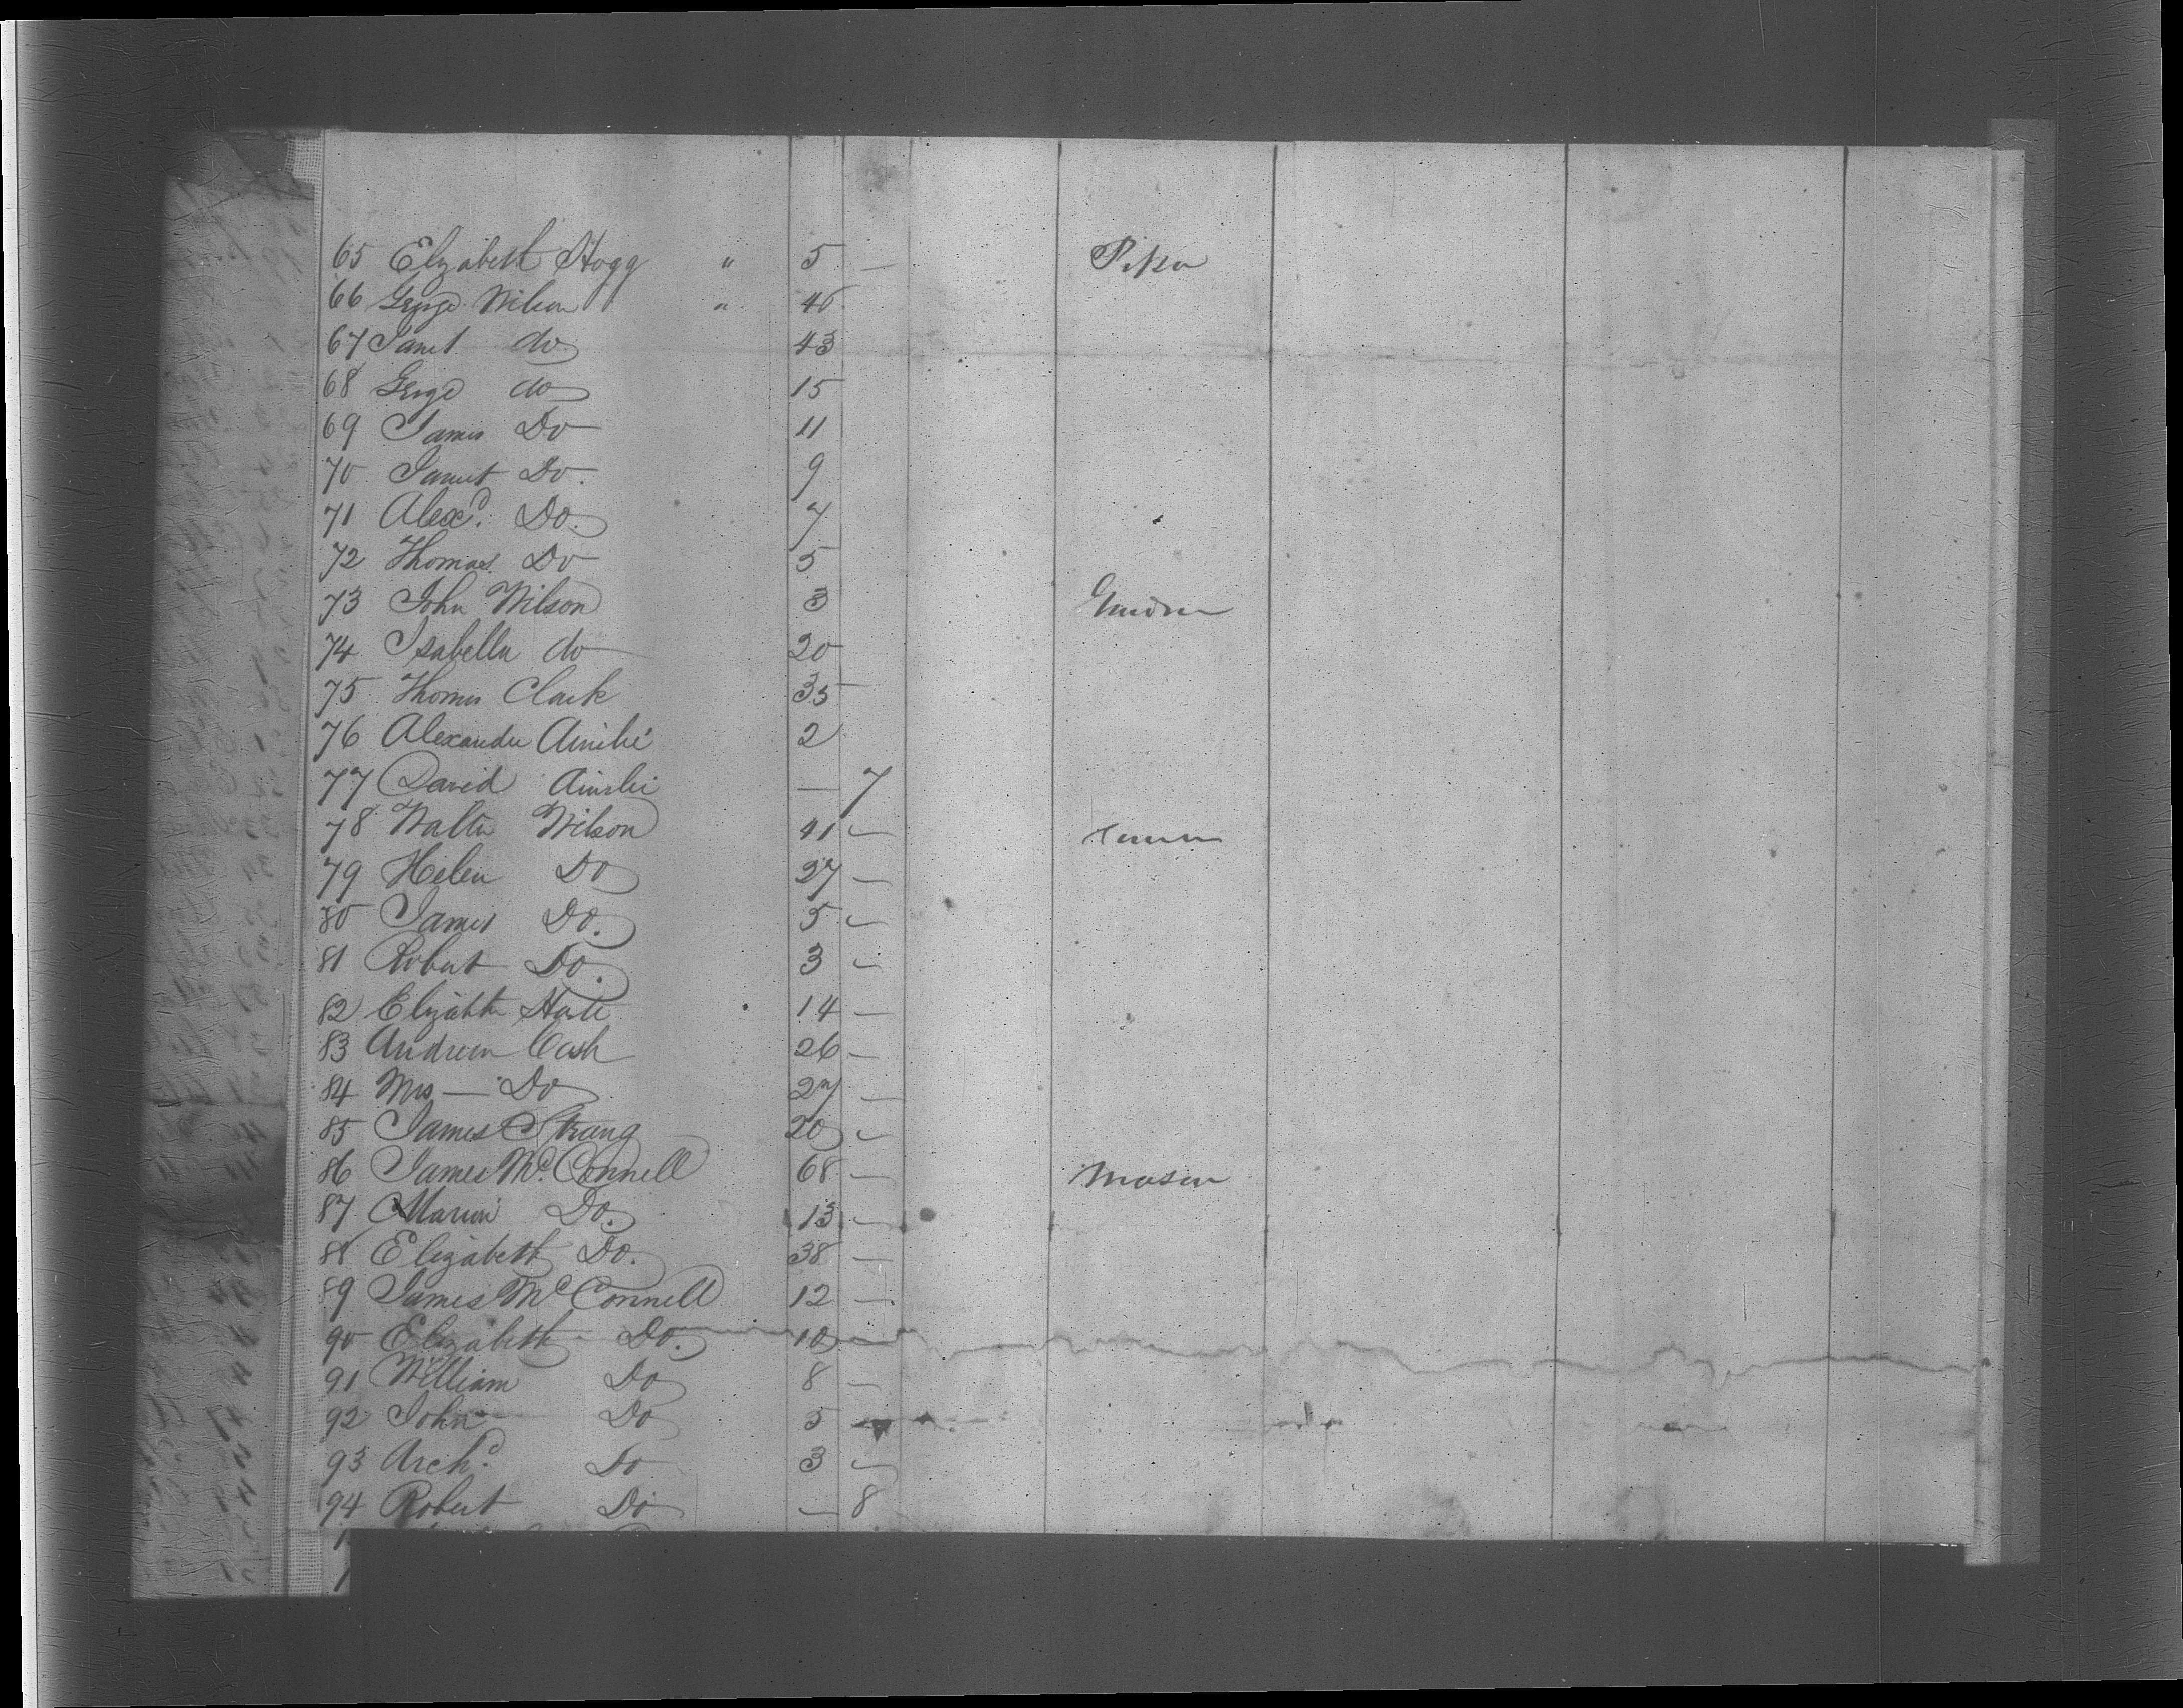 65 Elizabeth Hogg " 5 —
66 George Wilson " 46
67 Janet do 43
68 George do 15
69 James Do 11
70 Janet Do. 9
71 Alexr. Do. 7
72 Thomas Do 5
73 John Wilson 3
74 Isabella do 20
75 Thomas Clark 35
76 Alexander Ainslie 2
77 David Ainslie — 7
78 Walter Wilson 41 —
79 Helen Do 27 —
80 James Do. 5 —
81 Robert Do. 3 —
82 Elizabth 14 —
83 Andrew Cash 26 —
84 Mrs — Do 27 —
85 James Strang 20 —
86 James McConnell 68 — Mason
87 Marion Do. 13 —
88 Elizabeth Do. 38 —
89 James McConnell 12 —
90 Elizabeth Do. 10 —
91 William Do 8 —
92 John Do 5 —
93 Archd. Do 3 —
94 Robert Do — 8